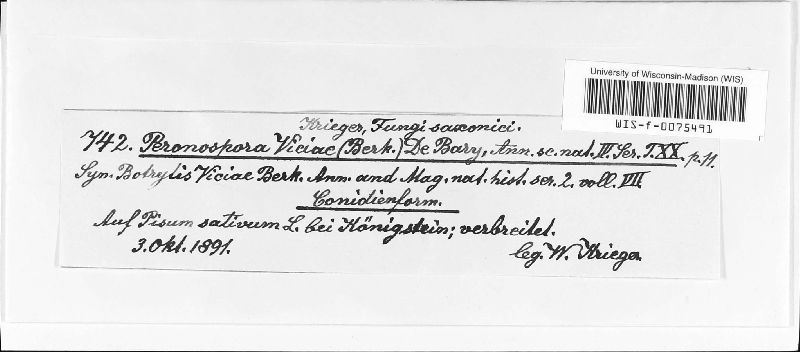 University of Wisconsin-Madison (WIS)
WIS-f-0075491
Krieger, Fungi saxonici.
742. Peronospora Viciae (Berk.) De Bary, Ann. sc. nat. IV. Ser. T. XX. p. 11.
Syn. Botrytis Viciae Berk. Ann. and Mag. nat. hist. ser. 2. voll. VII.
Conidienform.
Auf Pisum sativum L. bei Königstein; verbreitet.
3. Okt. 1891. leg. W. Krieger.